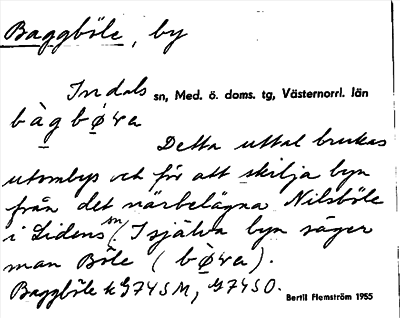 Baggböle, by
Indals sn, Med. ö. doms. tg, Västernorrl. län
bàgbø̀ra
Detta uttal brukas
utombys och för att skilja byn
från det närbelägna Nilsböle
i Lidens sn. I själva byn säger
man Böle (bø̀ra).
Baggböle k G745M, G7450.
Bertil Flemström 1955